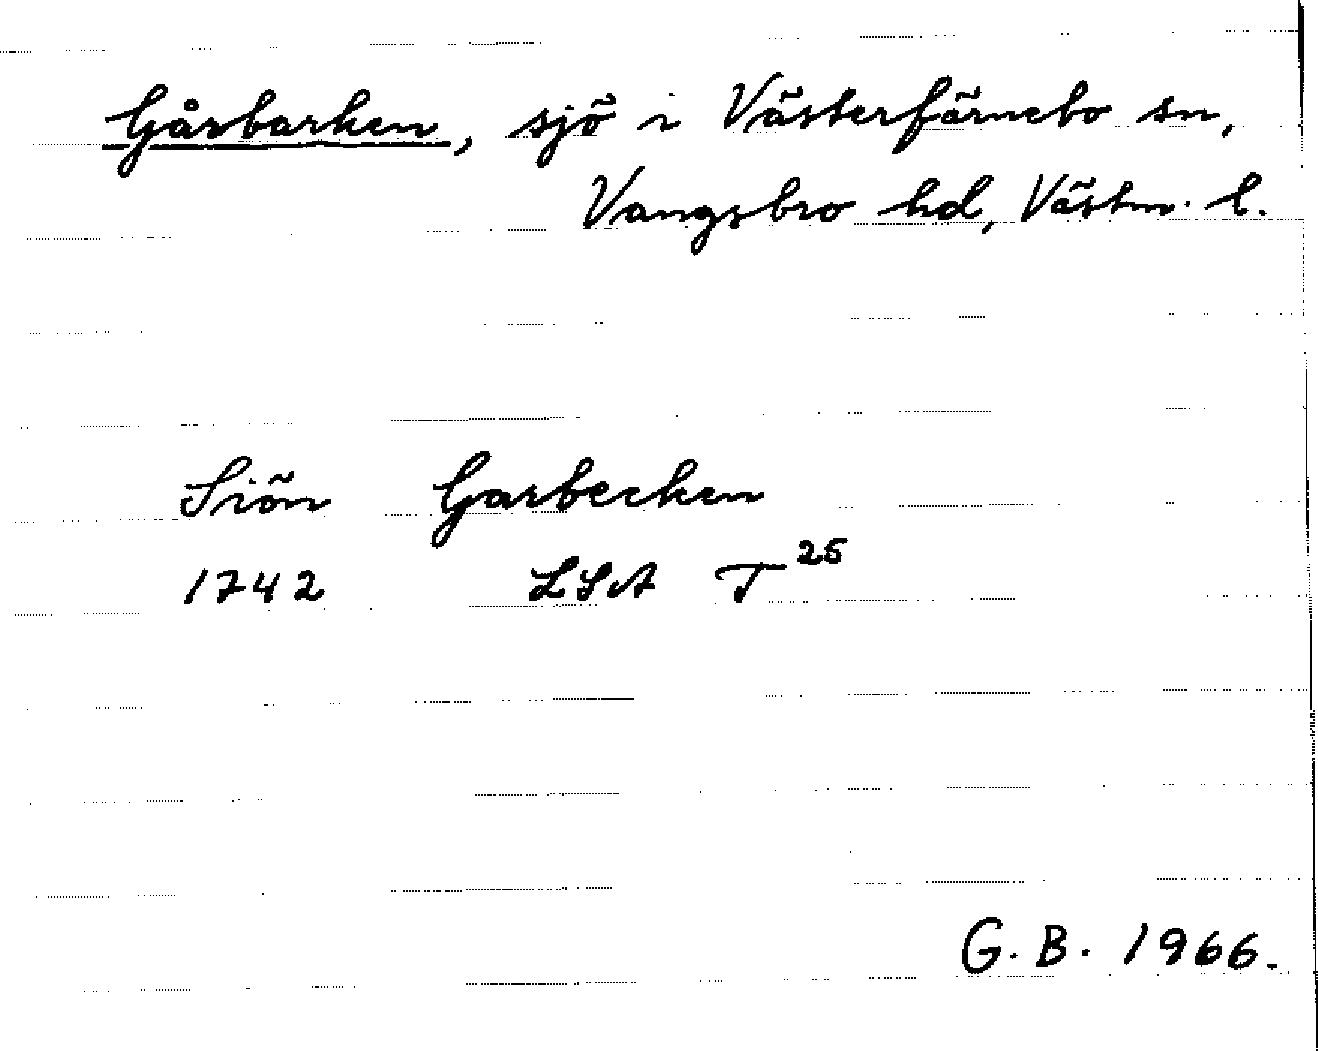 Gårbarken, sjö i Västerfärnebo sn,
Vangsbro hd, Västm. l.
Siön Garbecken
1742 LSA T 26
G. B. 1966.